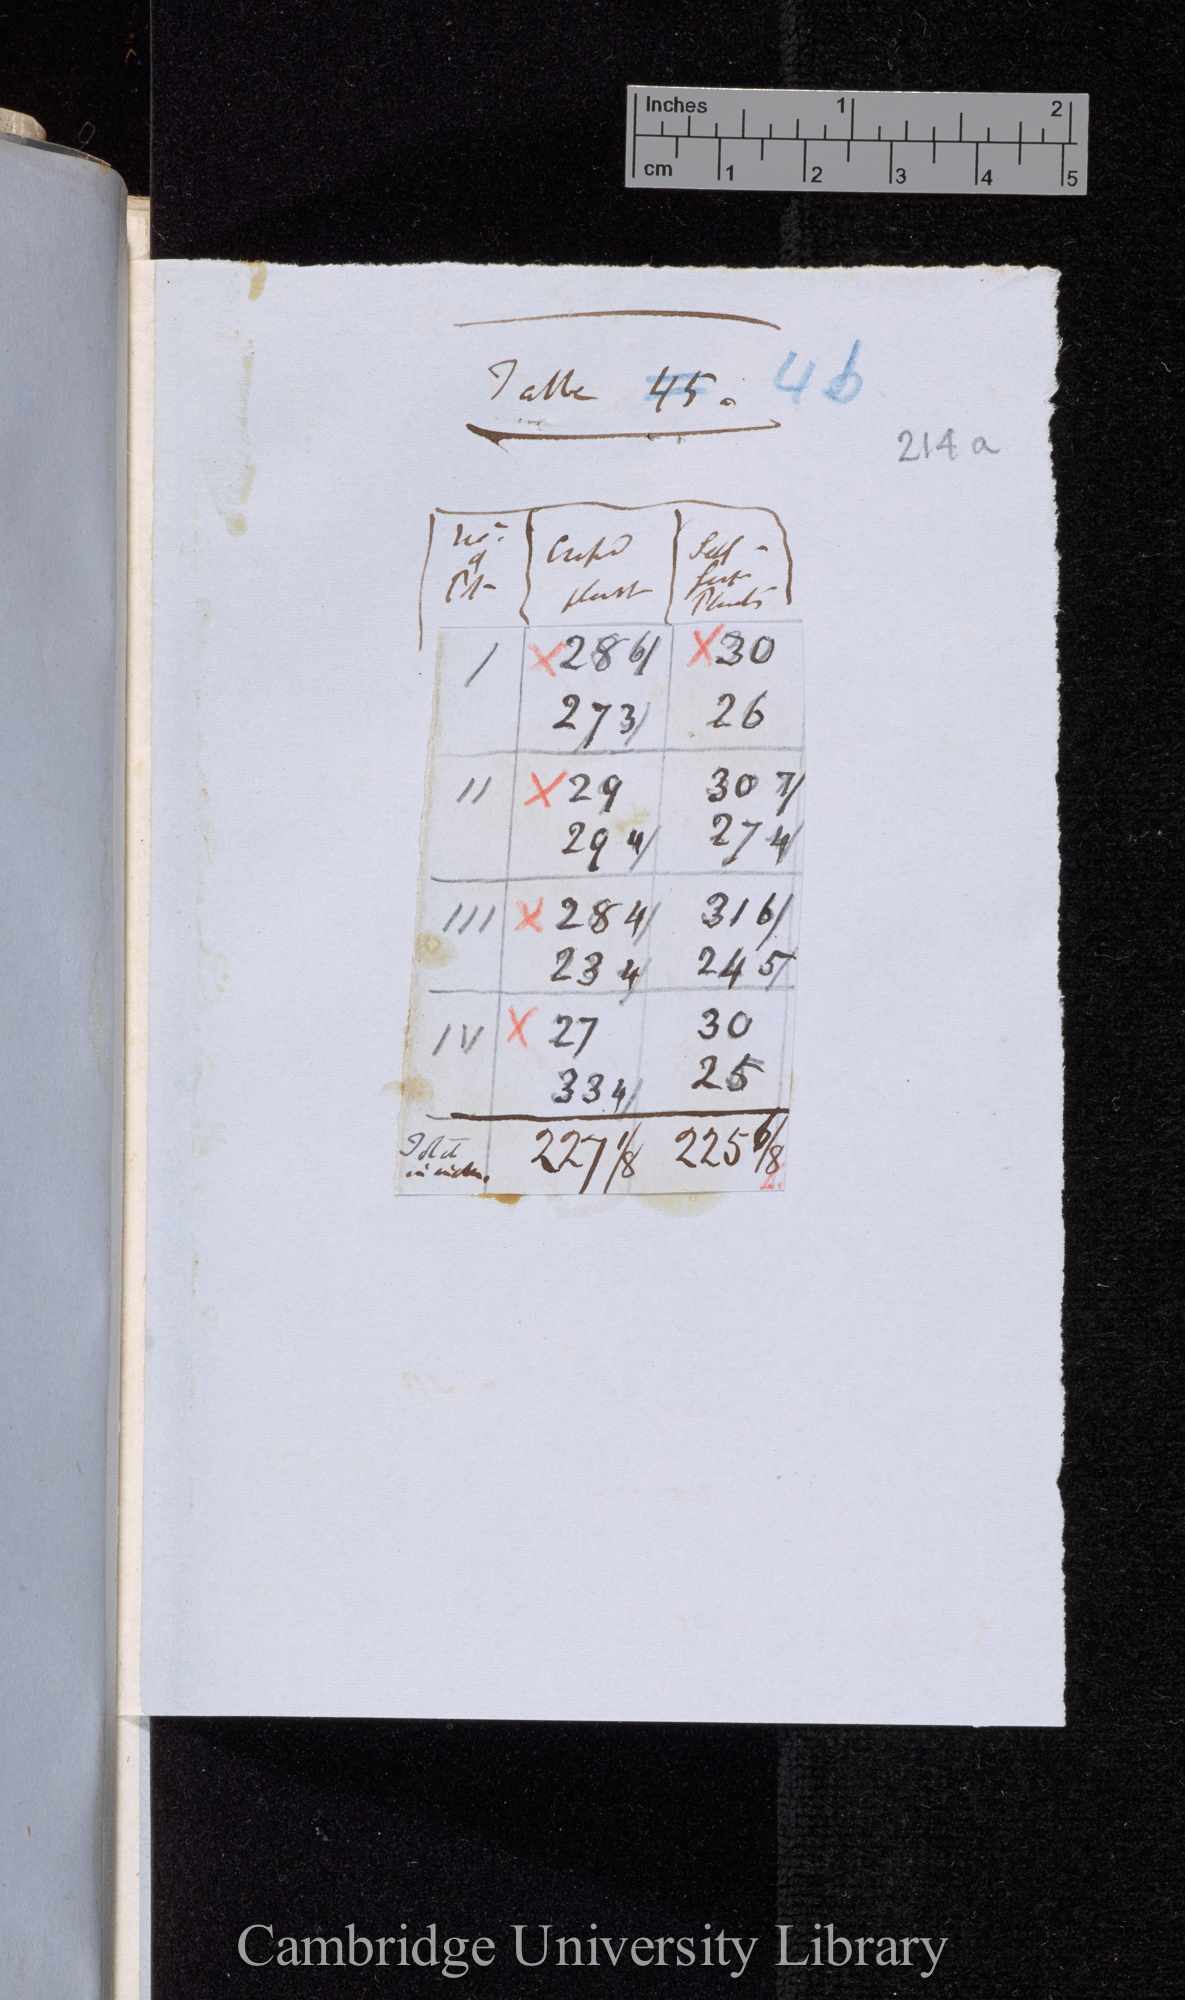 Inches 1 2
cm 1 2 3 4 5
Table 45. 46
214 a
No. of Pot Crossed plants Self-fert. Plants
I X 28 6/ X 30
27 3/ 26
II X 29 30 7/
29 4/ 27 4/
III X 28 4/ 31 6/
23 4/ 24 5/
IV X 27 30
33 4/ 25
Total in inches. 227 1/8 225 6/8
Cambridge University Library